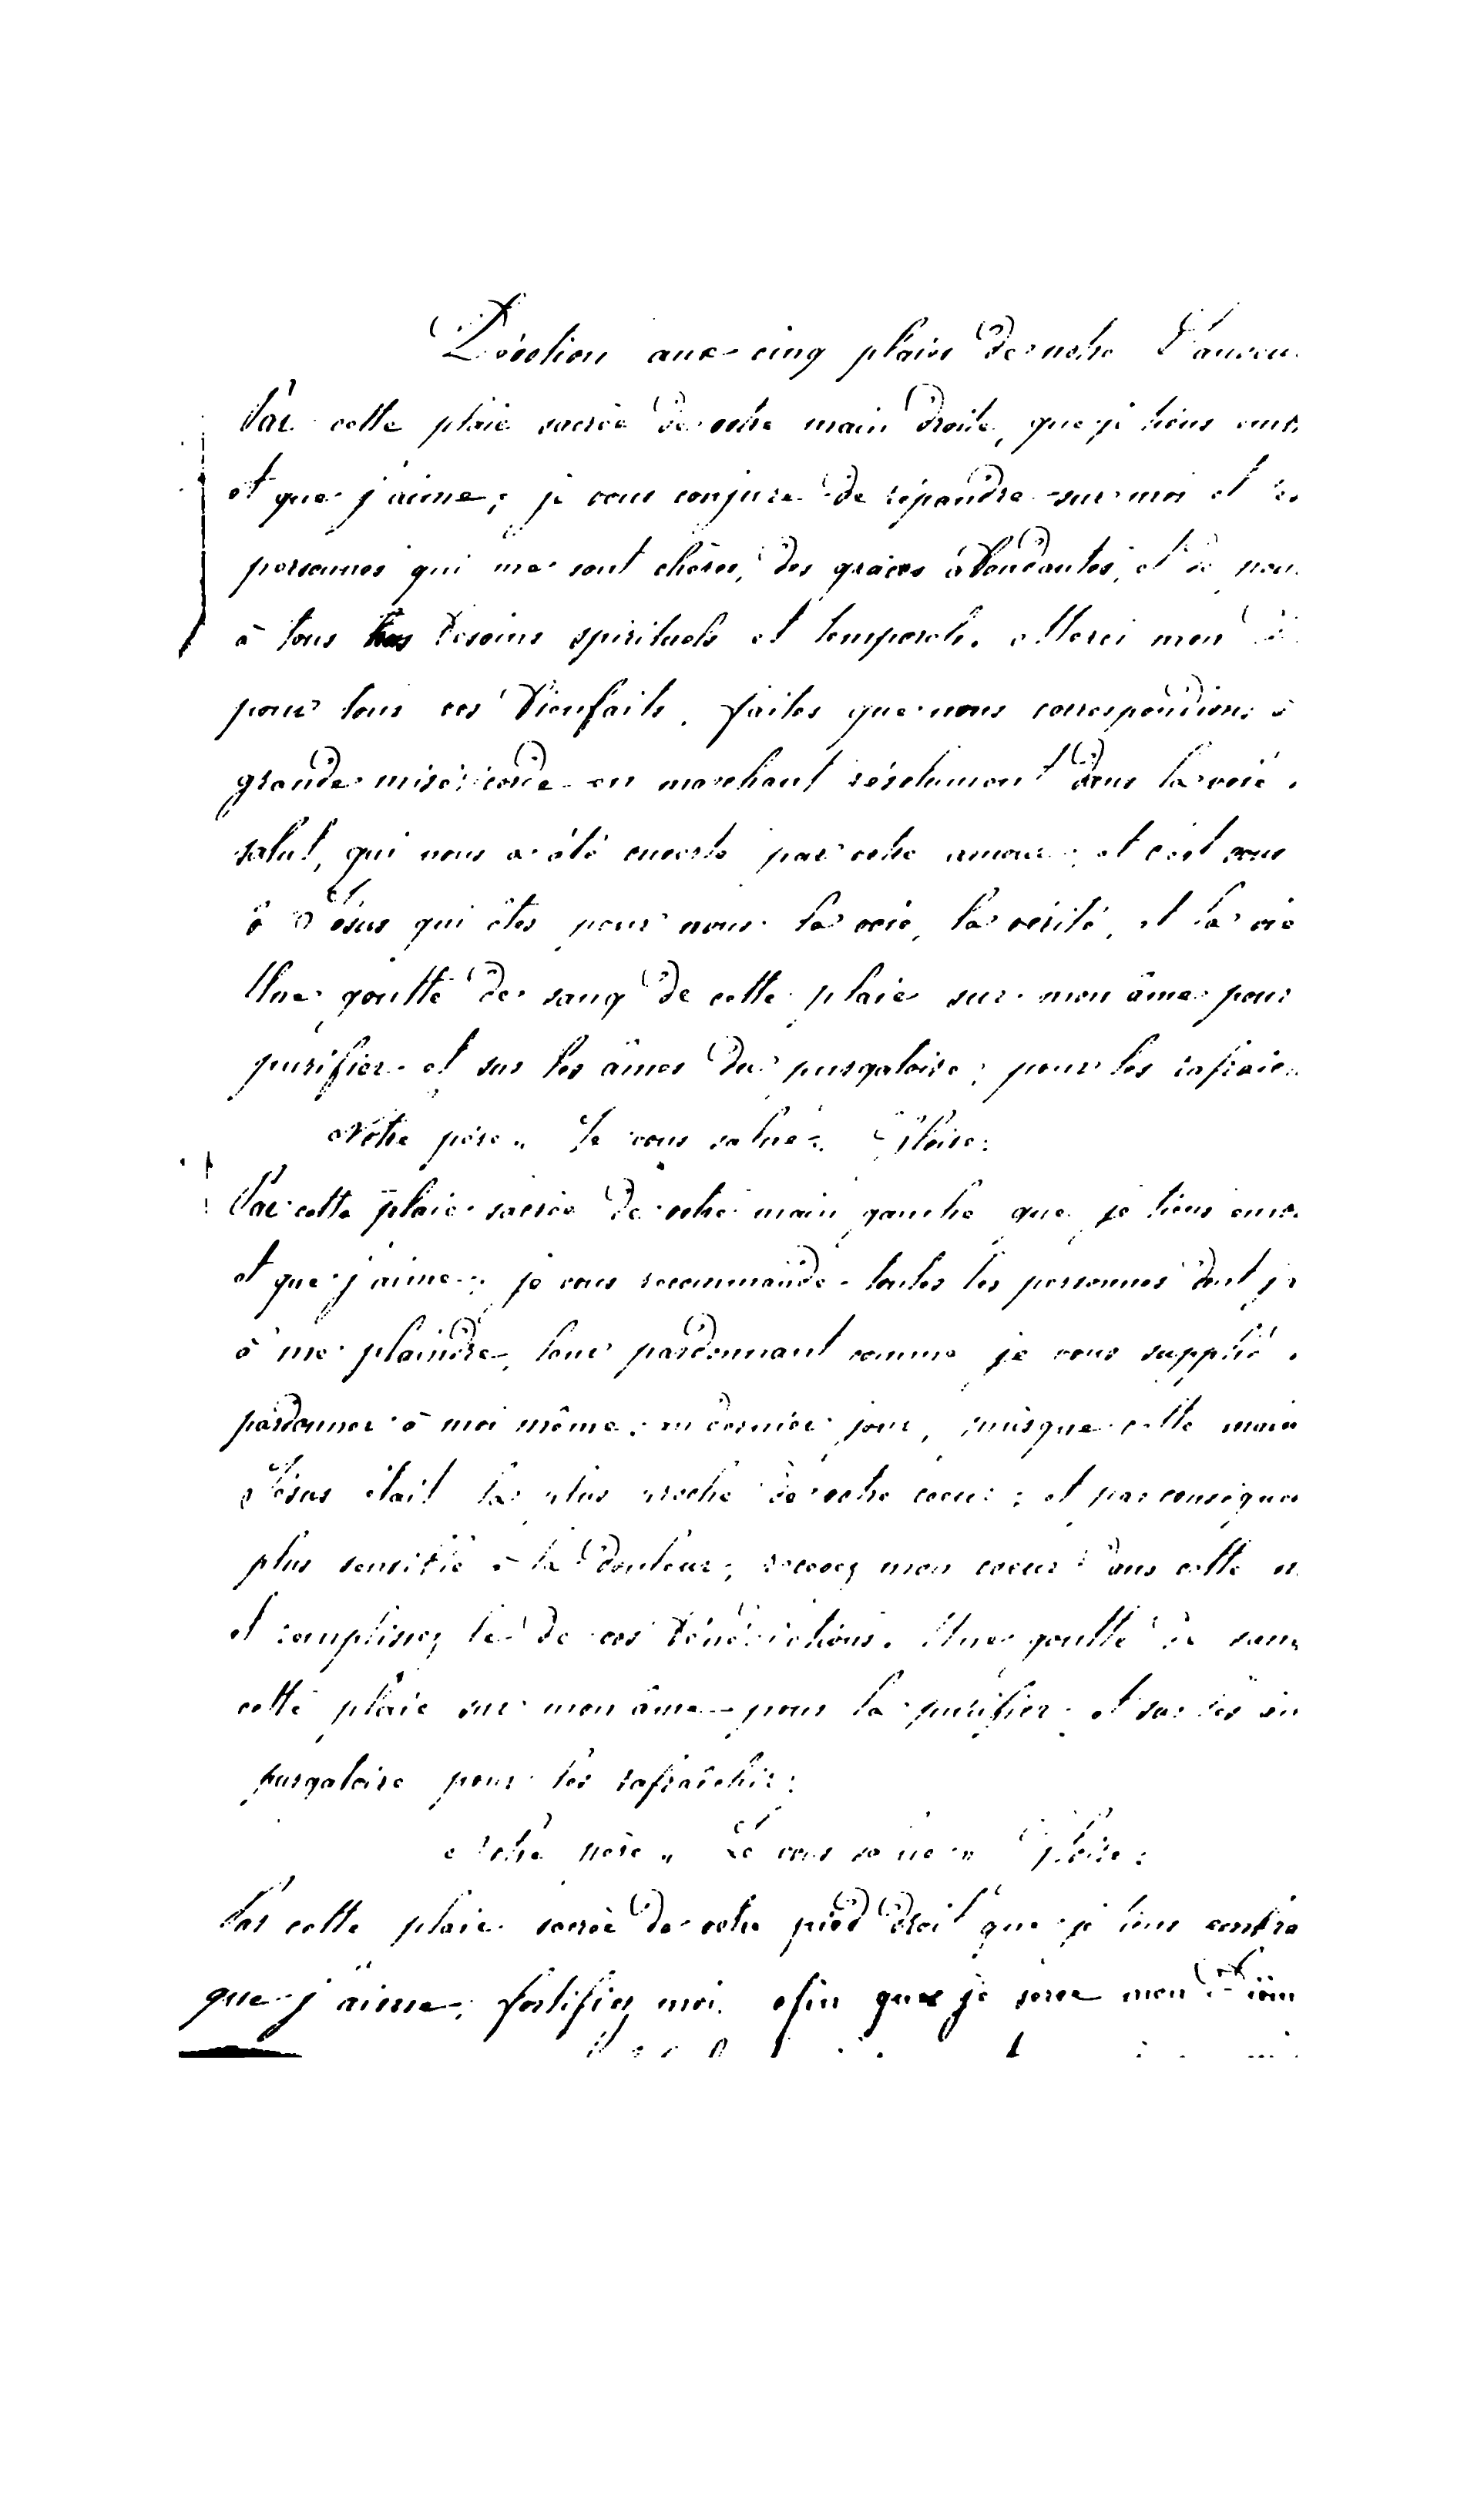 Dévotion aux cinq plaies de notre Sauveu
Par cette plaie sacrée de votre main droite, que je tiens
et que j'aime; je vous conjure de répandre sur moi et
personnes qui me sont chères, des graces abondantes, et de
à tous besoins spirituels et temporels. Merci mon
pour tous vos bienfaits. faites que nous correspondions à
grande miséricorde en marchant résolument dans la voie
salut, qui nous a été ouverte par votre amour; et c'est vous
ô Jésus qui êtes pour nous la voie, la vérité, et la vie
Une goutte de sang de cette plaie sur mon âme pour
purifier et sur les âmes du purgatoire; pour les
Notre père " Je vous salue " Gloire:
Par cette plaie sacrée de votre main gauche que je tiens
et que j'aime; je vous recommande toutes les personnes dont
à me plaindre, leur pardonnant comme je vous supplie
pardonner à moi même, au dernier jour, puisque cette main
Jésus était la plus proche de votre coeur; et par
plus sensible à la douleur; recevez mon coeur dans cette
et remplissez le de vos bénédictions. Une goutte de sang
cette plaie sur mon âme pour la purifier et sur les
purgatoire pour les rafraîchir:
Notre père " Je vous salue " Gloire:
Par cette plaie sacrée de votre pied droit que je tiens
que j'aime; fortifiez moi. afin que je serve mon